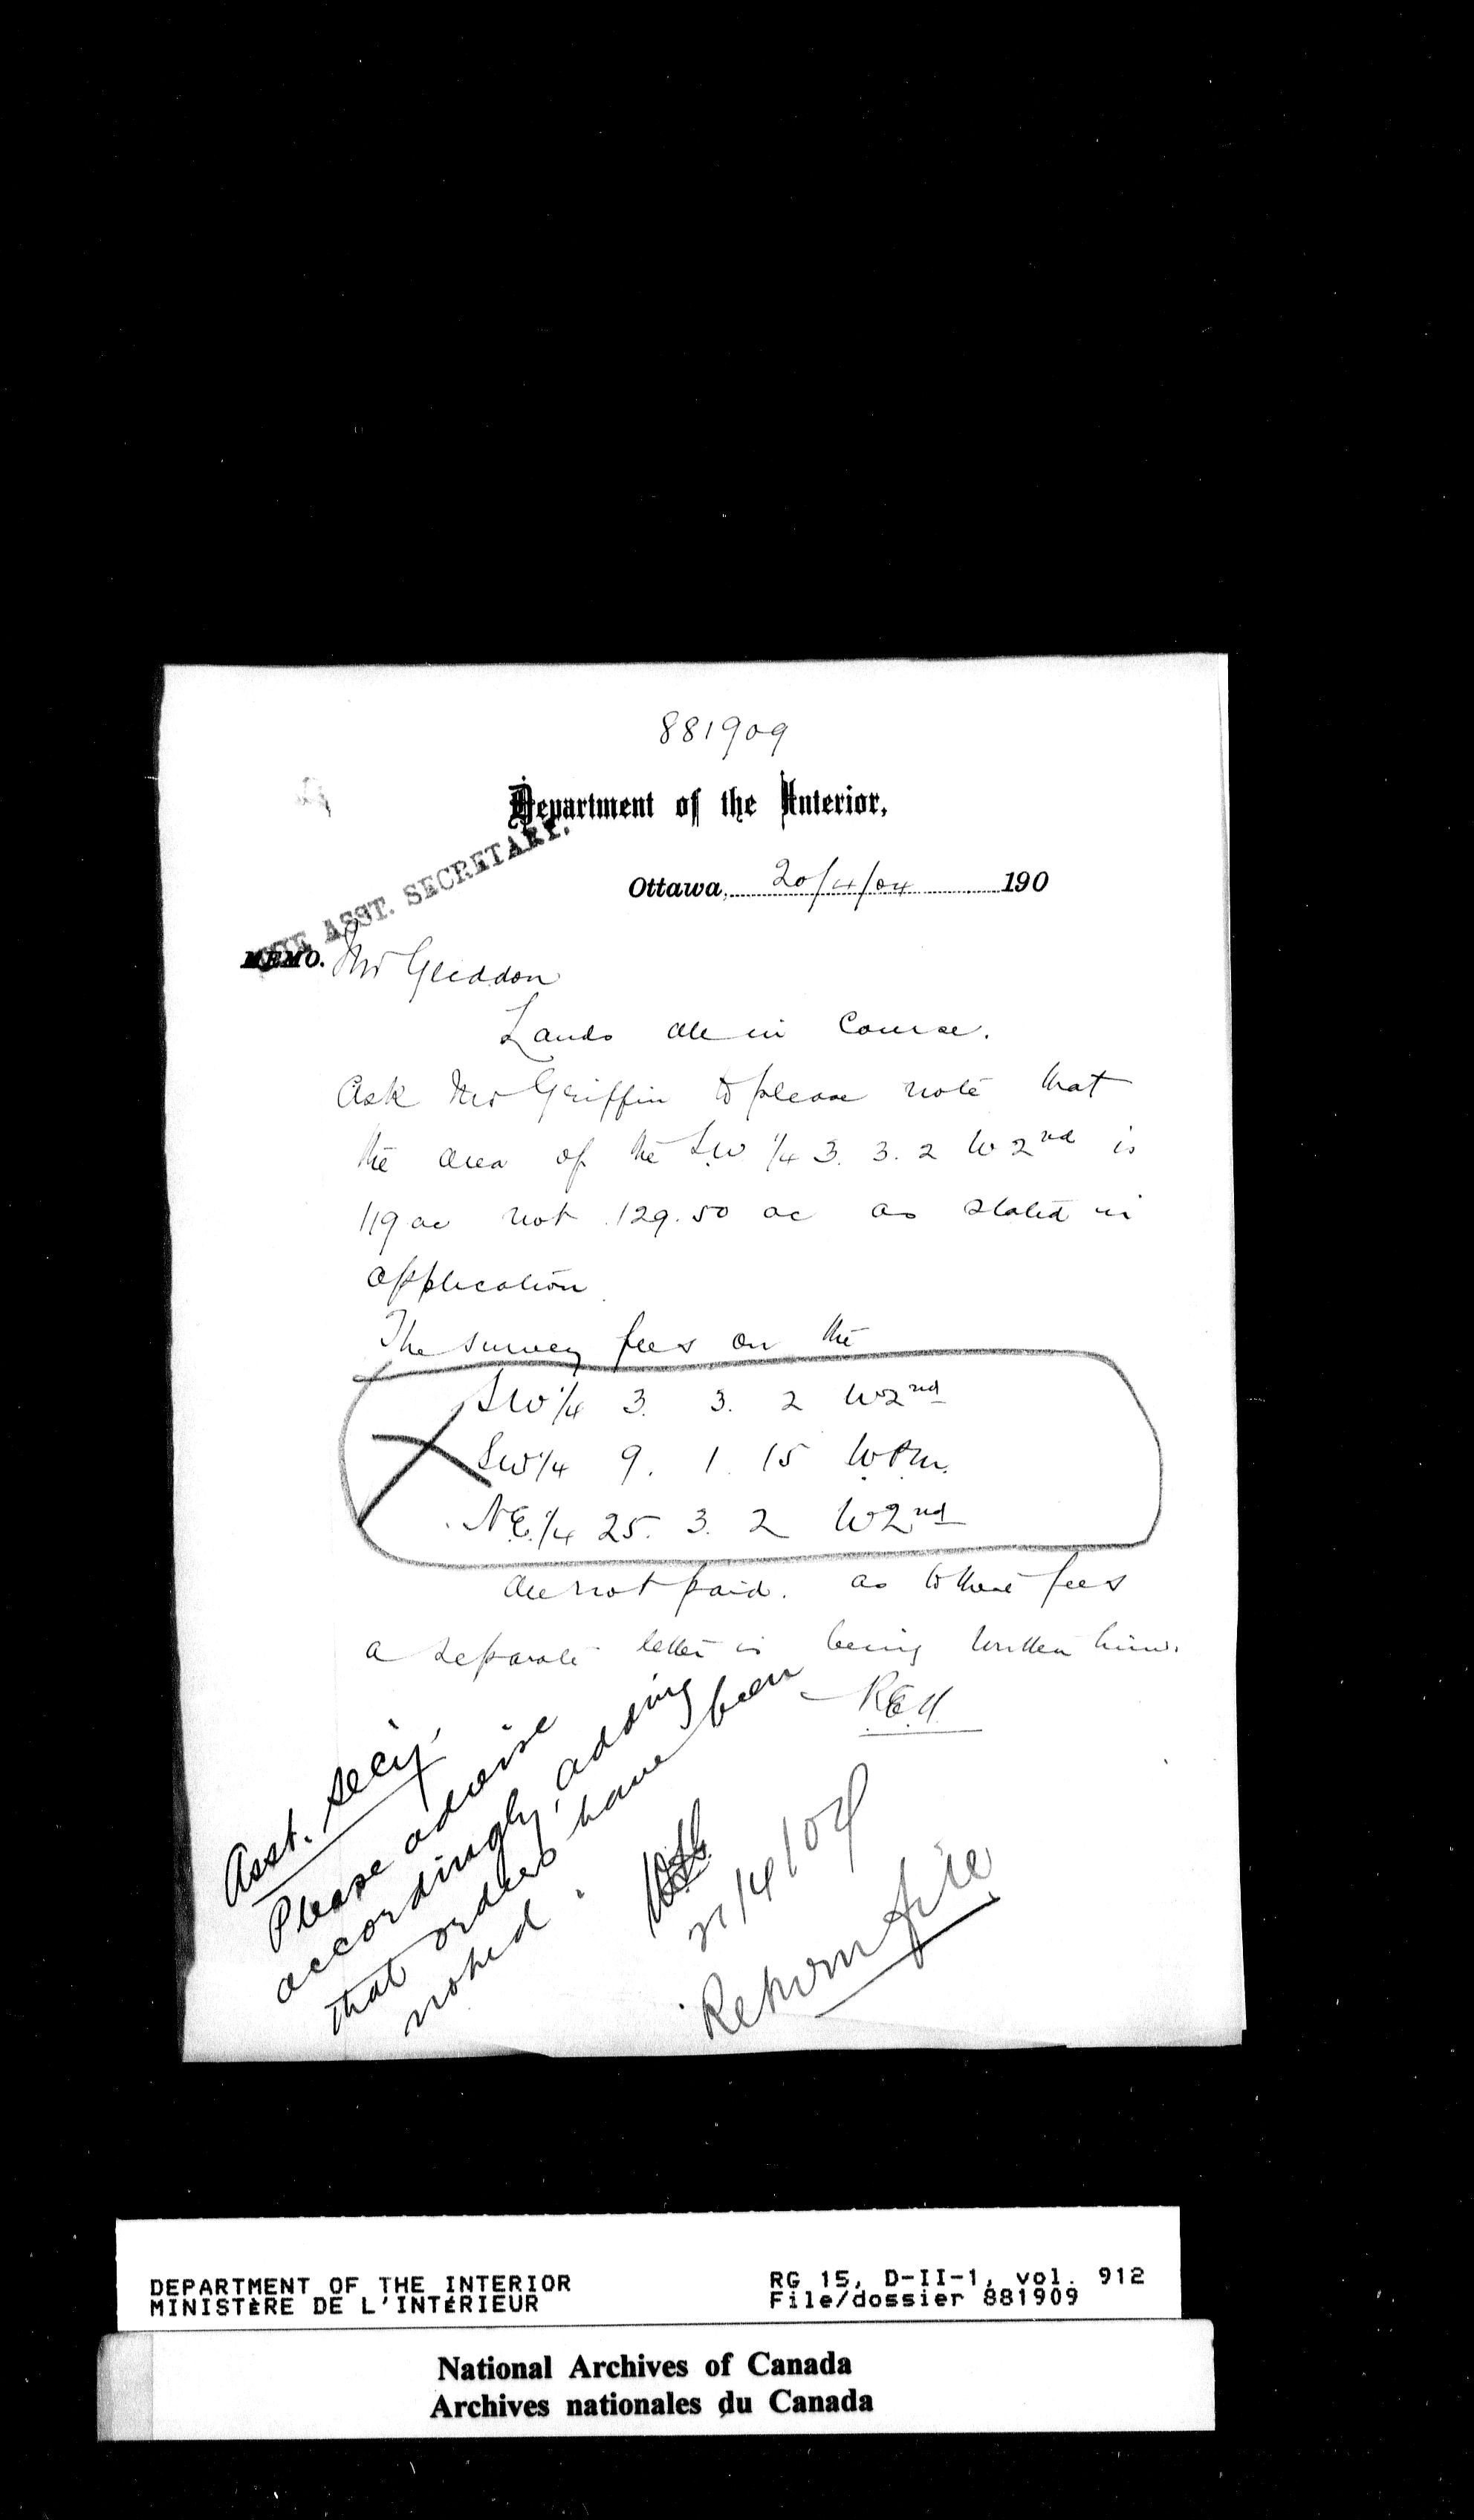 881909
Department of the Interior,
Ottawa, 20/4/04 190
THE ASST. SECRETARY.
MEMO. Mr Gliddon
Lands all in course.
Ask Mr Griffin to please note that
the area of the SW 1/4 3. 3. 2 W 2nd is
119 ac not 129.50 ac as stated in
application
The survey fees on the
SW 1/4 3. 3. 2 W2nd
SW 1/4 9. 1. 15 W.P.M.
N.E. 1/4 25. 3. 2 W2nd
are not paid. as to these fees
a separate letter is being written him.
R.E.H.
Asst. Secy.
Please advise
accordingly, adding
that orders have been
noted.
21/4/04
Return file
DEPARTMENT OF THE INTERIOR
MINISTÈRE DE L'INTÉRIEUR
RG 15, D-II-1, vol. 912
File/dossier 881909
National Archives of Canada
Archives nationales du Canada